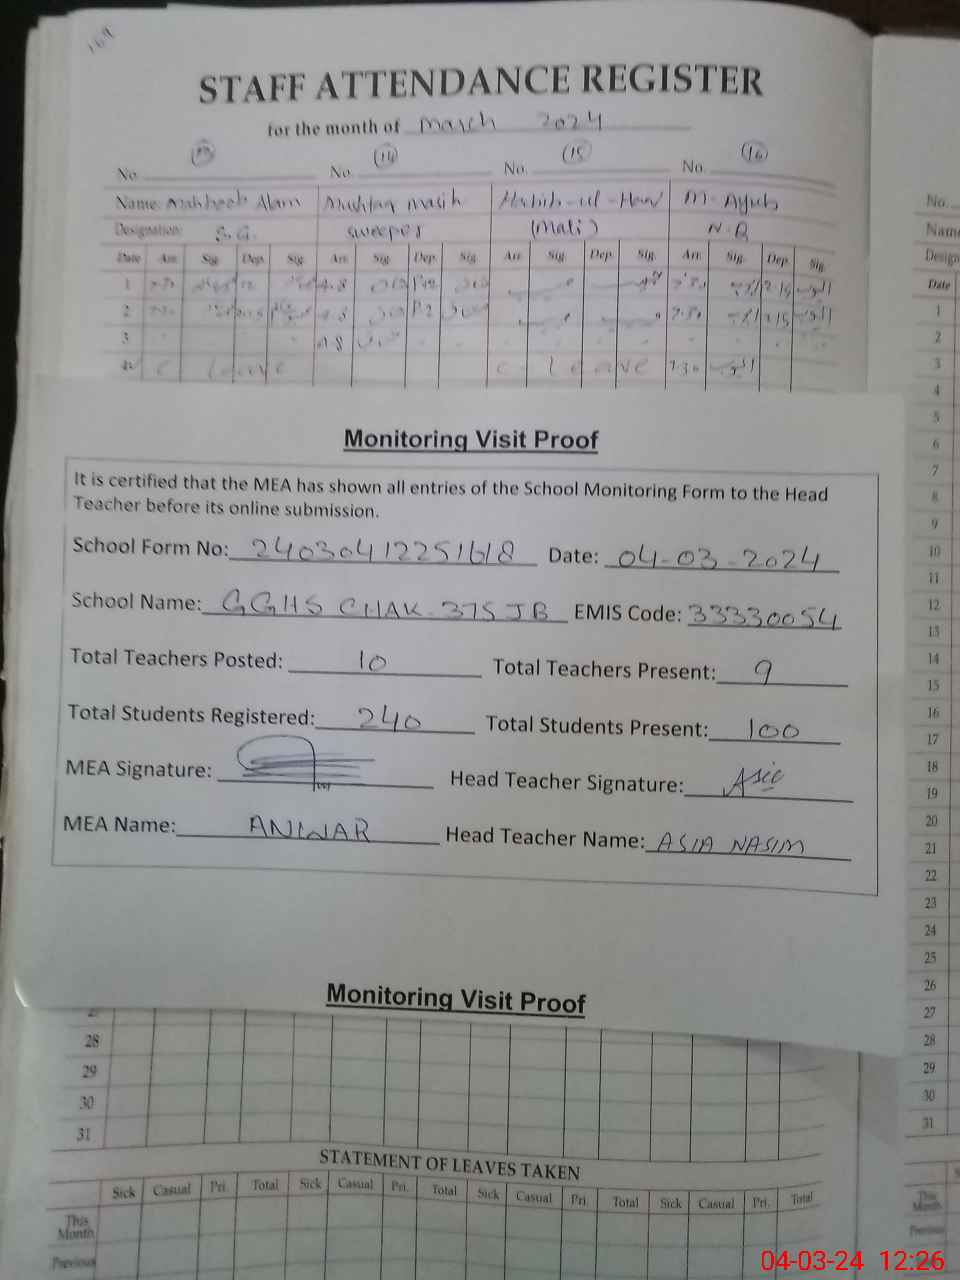 169
STAFF ATTENDANCE REGISTER
for the month of March 2024
No. 13 No. 14 No. 15 No. 16
Name: Mahboob Alam Mushtaq Masih M. Ayub
Designation: S.G. Sweeper (Mali) N.Q
Date Arr. Sig. Dep. Sig. Arr. Sig. Dep. Sig. Arr. Sig. Dep. Sig. Arr. Sig. Dep. Sig.
1
2
3
4 C leave C leave 7:30
Monitoring Visit Proof
It is certified that the MEA has shown all entries of the School Monitoring Form to the Head
Teacher before its online submission.
School Form No: 24030412251618 Date: 04-03-2024
School Name: GGHS CHAK-375 JB EMIS Code: 33330054
Total Teachers Posted: 10 Total Teachers Present: 9
Total Students Registered: 240 Total Students Present: 100
MEA Signature: Head Teacher Signature: Asia
MEA Name: ANWAR Head Teacher Name: ASIA NASIM
Monitoring Visit Proof
27
28
29
30
31
STATEMENT OF LEAVES TAKEN
Sick Casual Pri. Total Sick Casual Pri. Total Sick Casual Pri. Total Sick Casual Pri. Total
This
Month
Previous
No.
Name
Design
Date
1
2
3
4
5
6
7
8
9
10
11
12
13
14
15
16
17
18
19
20
21
22
23
24
25
26
27
28
29
30
31
This
Month
Previous
04-03-24 12:26